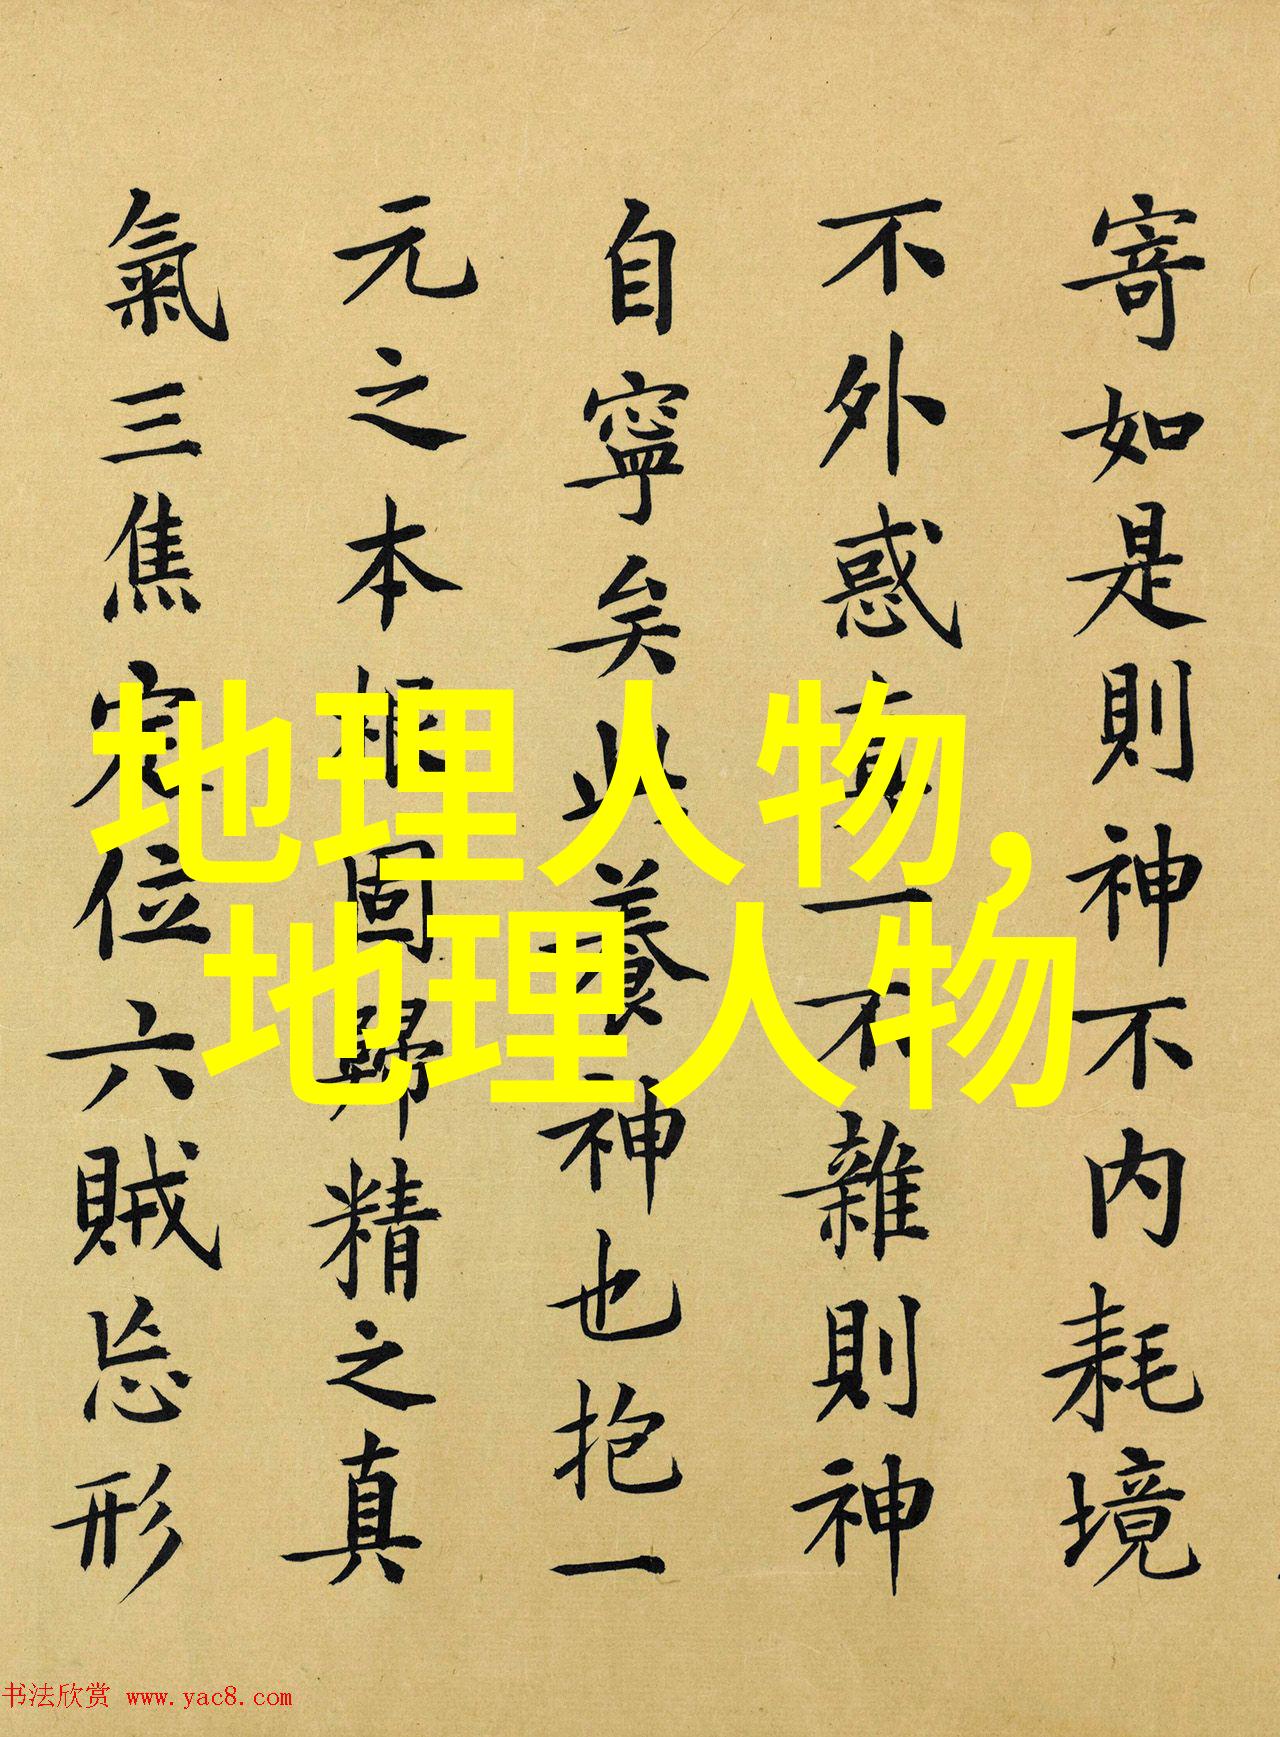 寄如是則神不内耗境
不外惑真一不雜則神
自寧矣此養神也抱一
元之本根固歸精之真
氣三焦定位六賊忘形
地理人物,
地理人物
书法欣赏 www.yac8.com